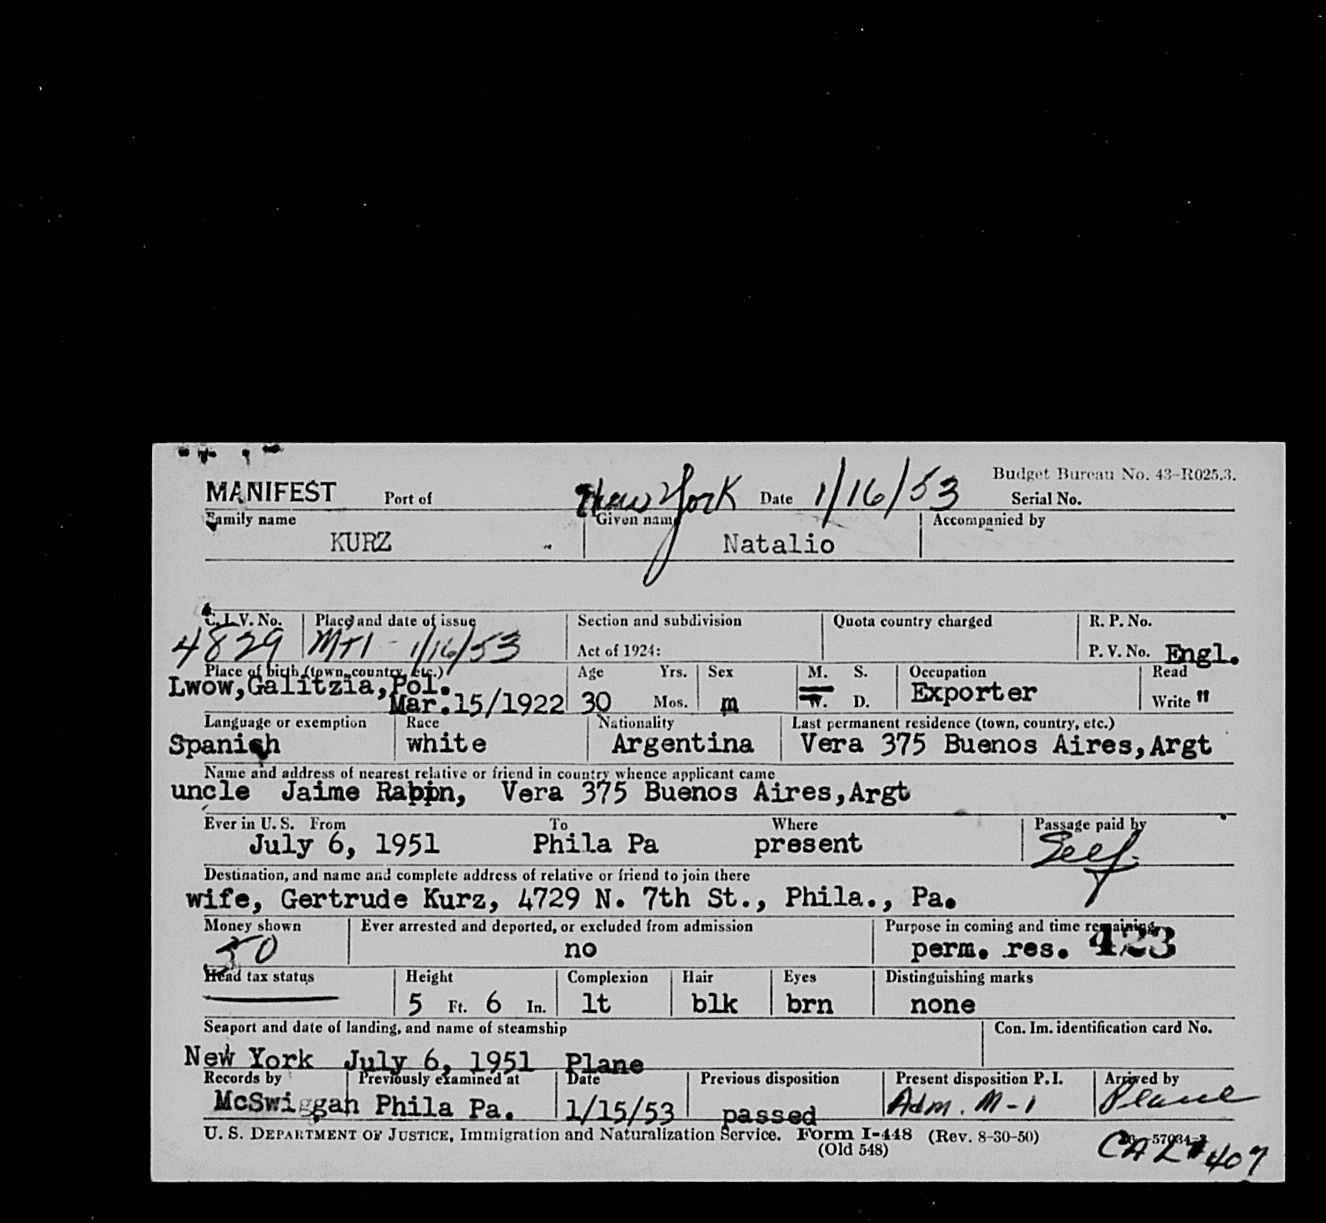 Budget Bureau No. 43-R025.3.
MANIFEST Port of New York Date 1/16/53 Serial No.
Family name Given name Accompanied by
KURZ Natalio
C. I. V. No. Place and date of issue Section and subdivision Quota country charged R. P. No.
4829 MTl - 1/16/53 Act of 1924: P. V. No. Engl.
Place of birth (town, country, etc.) Age Yrs. Sex M. S. Occupation Read
Lwow, Galitzia, Pol. Exporter
Mar. 15/1922 30 Mos. m W. D. Write "
Language or exemption Race Nationality Last permanent residence (town, country, etc.)
Spanish white Argentina Vera 375 Buenos Aires, Argt
Name and address of nearest relative or friend in country whence applicant came
uncle Jaime Rabin, Vera 375 Buenos Aires, Argt
Ever in U. S. From To Where Passage paid by
July 6, 1951 Phila Pa present Self
Destination, and name and complete address of relative or friend to join there
wife, Gertrude Kurz, 4729 N. 7th St., Phila., Pa.
Money shown Ever arrested and deported, or excluded from admission Purpose in coming and time remaining
50 no perm. res. 423
Head tax status Height Complexion Hair Eyes Distinguishing marks
5 Ft. 6 In. lt blk brn none
Seaport and date of landing, and name of steamship Con. Im. identification card No.
New York July 6, 1951 Plane
Records by Previously examined at Date Previous disposition Present disposition P. I. Arrived by
McSwiggan Phila Pa. 1/15/53 passed Adm. M-1 Plane
U. S. DEPARTMENT OF JUSTICE, Immigration and Naturalization Service. Form I-448 (Rev. 8-30-50)
(Old 548)
407